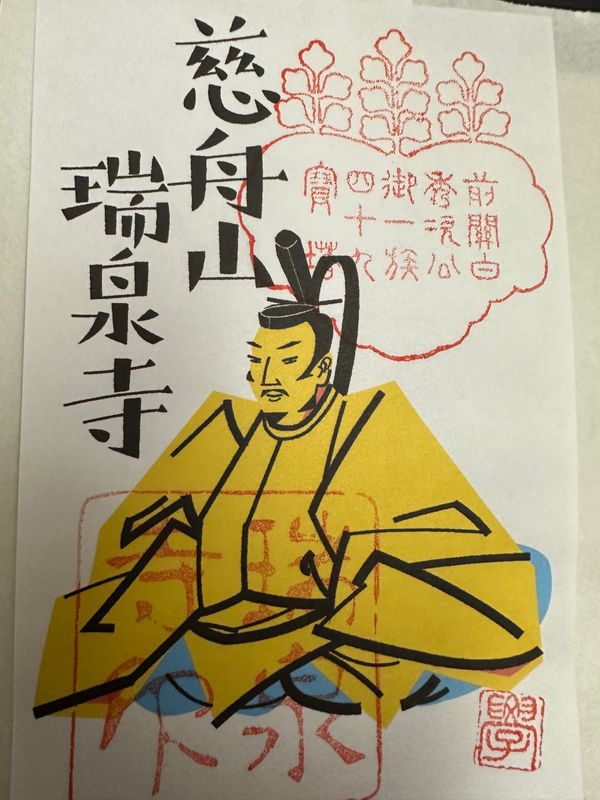 慈舟山
瑞泉寺
前關白
秀次公
御一族
四十九
寶塔
瑞泉
寺印
學